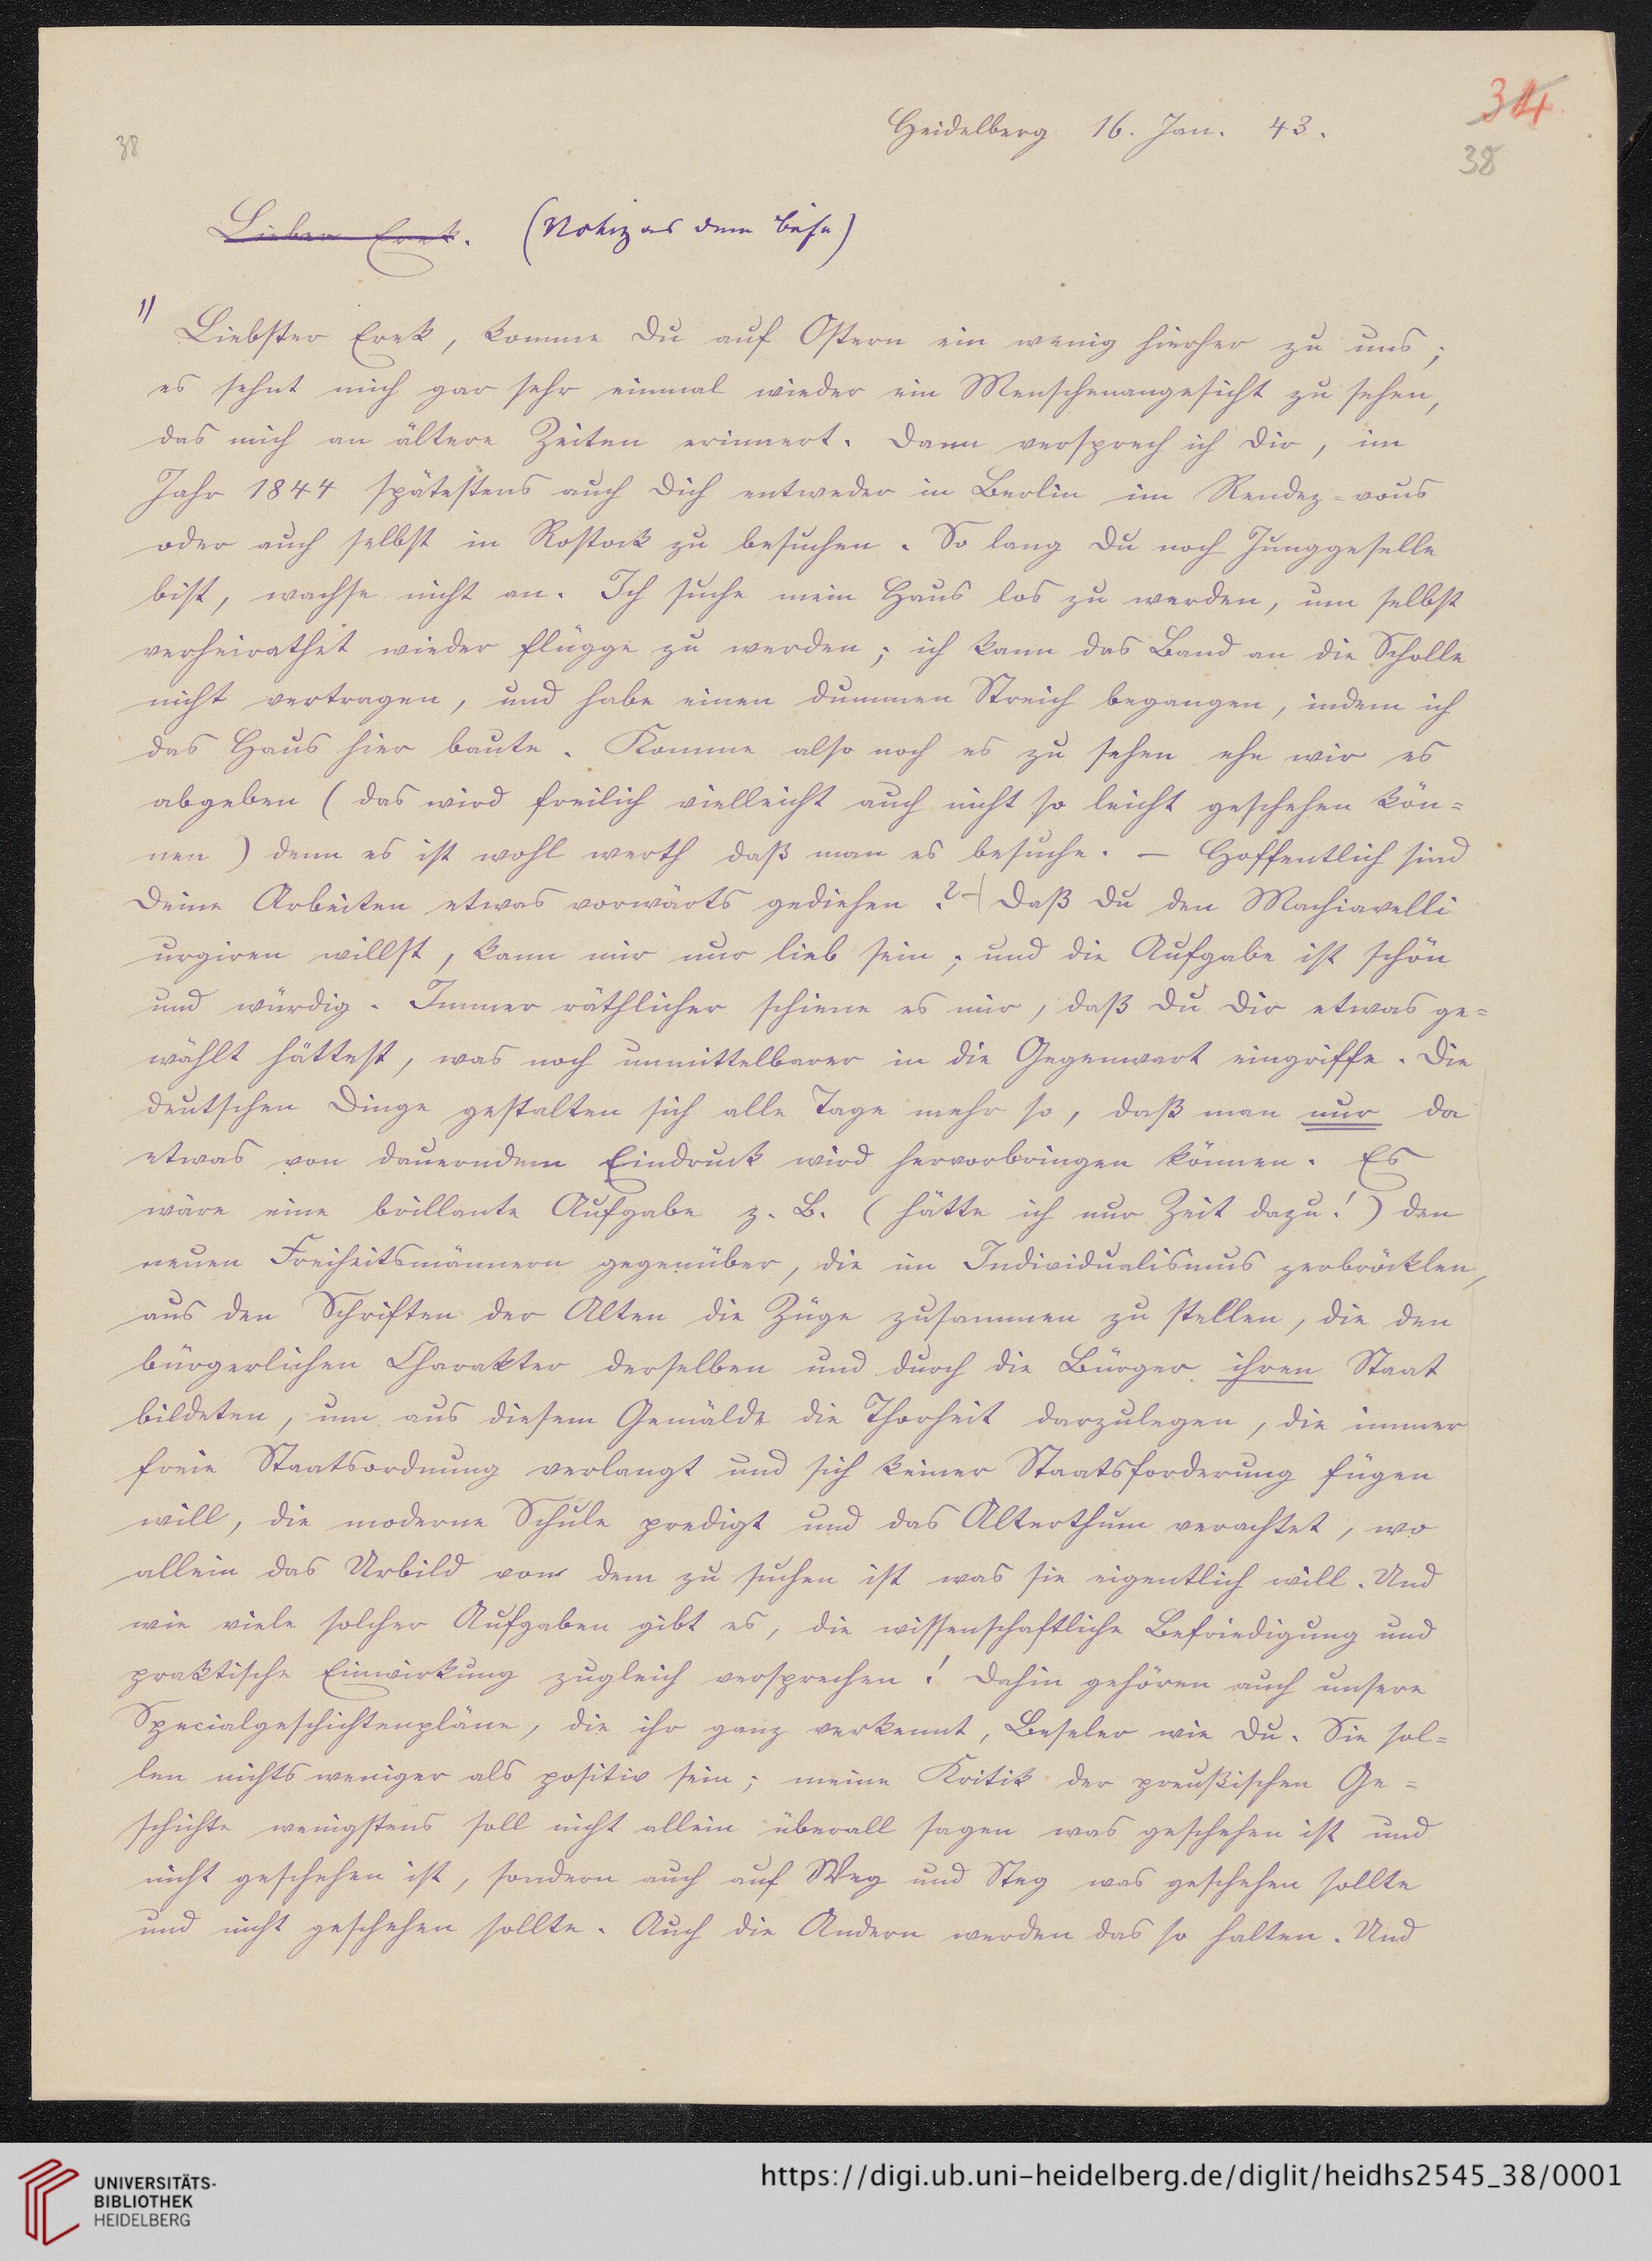 34
38
38
Heidelberg 16. Jan. 43.
Lieber Erek. (Notiz aus dem Briefe)
1)
Liebster Erek, komme Du auf Ostern ein wenig hierher zu uns;
es sehnt mich gar sehr einmal wieder ein Menschenangesicht zu sehen,
das mich an ältere Zeiten erinnert. Dann versprech ich Dir, im
Jahr 1844 spätestens auch Dich entweder in Berlin im Rendez-vous
oder auch selbst in Rostock zu besuchen. So lang Du noch Junggeselle
bist, wachse nicht an. Ich suche mein Haus los zu werden, um selbst
verheirathet wieder flügge zu werden; ich kann das Band an die Scholle
nicht vertragen, und habe einen dummen Streich begangen, indem ich
das Haus hier baute. Komme also noch es zu sehen ehe wir es
abgeben (das wird freilich vielleicht auch nicht so leicht geschehen kön=
nen) denn es ist wohl werth daß man es besuche. — Hoffentlich sind
Deine Arbeiten etwas vorwärts gediehen? — Daß Du den Machiavelli
urgiren willst, kann mir nur lieb sein; und die Aufgabe ist schön
und würdig. Immer räthlicher schiene es mir, daß Du Dir etwas ge=
wählt hättest, was noch unmittelbarer in die Gegenwart eingriffe. Die
deutschen Dinge gestalten sich alle Tage mehr so, daß man nur da
etwas von dauerndem Eindruck wird hervorbringen können. Es
wäre eine brillante Aufgabe z. B. (hätte ich nur Zeit dazu!) den
neuen Freiheitsmännern gegenüber, die im Individualismus zerbröcklen,
aus den Schriften der Alten die Züge zusammen zu stellen, die den
bürgerlichen Charakter derselben und durch die Bürger ihren Staat
bildeten, um aus diesem Gemälde die Thorheit darzulegen, die immer
freie Staatsordnung verlangt und sich keiner Staatsforderung fügen
will, die moderne Schule predigt und das Alterthum verachtet, wo
allein das Urbild von dem zu suchen ist was sie eigentlich will. Und
wie viele solcher Aufgaben gibt es, die wissenschaftliche Befriedigung und
praktische Einwirkung zugleich versprechen! Dahin gehören auch unsere
Specialgeschichtenpläne, die ihr ganz verkennt, Beseler wie Du. Sie sol=
len nichts weniger als positiv sein; meine Kritik der preußischen Ge=
schichte wenigstens soll nicht allein überall sagen was geschehen ist und
nicht geschehen ist, sondern auch auf Weg und Steg was geschehen sollte
und nicht geschehen sollte. Auch die Andern werden das so halten. Und
UNIVERSITÄTS-
BIBLIOTHEK
HEIDELBERG
https://digi.ub.uni-heidelberg.de/diglit/heidhs2545_38/0001